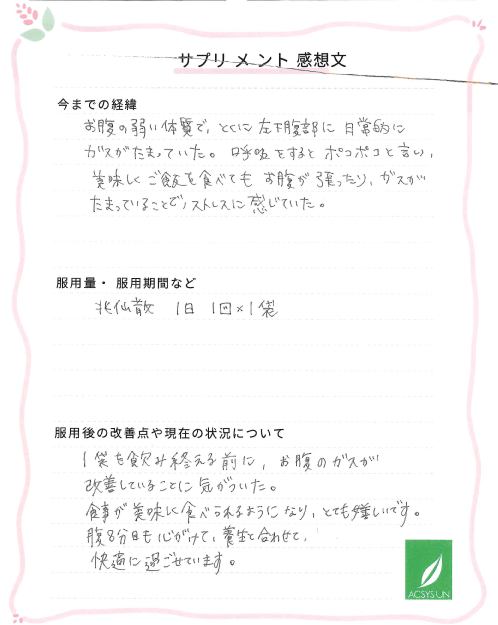 サプリメント 感想文
今までの経緯
お腹の弱い体質で、とくに左下腹部に日常的に
ガスがたまっていた。呼吸をするとポコポコと言い、
美味しくご飯を食べてもお腹が張ったり、ガスが
たまっていることで、ストレスに感じていた。
服用量・服用期間など
兆仙散 1日 1回×1袋
服用後の改善点や現在の状況について
1袋も飲み終える前に、お腹のガスが
改善していることに気がついた。
食事が美味しく食べられるようになり、とても嬉しいです。
腹8分目も心がけて、養生と合わせて、
快適に過ごせています。
ACSYS UN